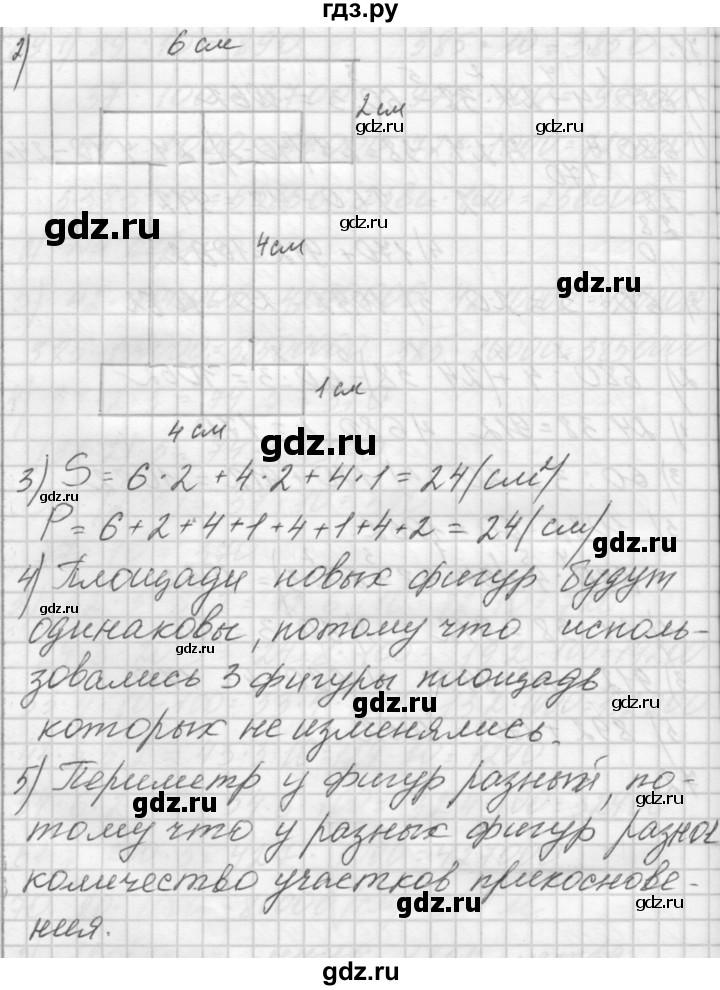 гдз.ру
2) 6 см
2 см
gdz.ru
gdz.ru
gdz.ru
gdz.ru
4 см
gdz.ru
gdz.ru
1 см
4 см
gdz.ru
3) S = 6·2 + 4·2 + 4·1 = 24 (см²)
gdz.ru
P = 6+2+4+1+4+1+4+2 = 24 (см)
gdz.ru
4) Площади новых фигур будут
gdz.ru
одинаковы, потому что исполь-
gdz.ru
зовались 3 фигуры площадь
gdz.ru
которых не изменялись.
5) Периметр у фигур разный, по-
gdz.ru
gdz.ru
тому что у разных фигур разное
количество участков прикоснове-
gdz.ru
ния.
gdz.ru